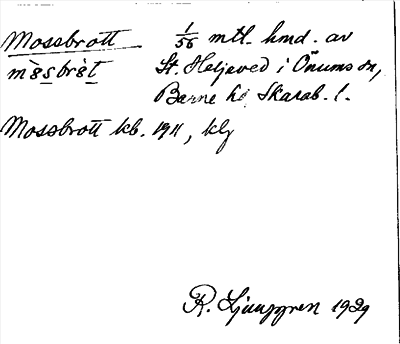 Mossbrott 1/56 mtl. hmd. av
mòs̲brò̲t̲ St. Heljeved i Önums sn,
Barne hd Skarab. l.
Mossbrott kb. 1911, klg
R. Ljunggren 1929